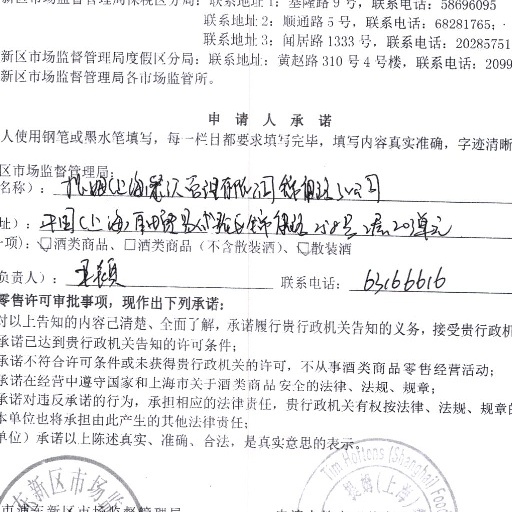 联系地址1：基隆路9号，联系电话：58696095
联系地址2：顺通路5号，联系电话：68281765；
联系地址3：闻居路1333号，联系电话：20285751
新区市场监督管理局度假区分局：联系地址：黄赵路310号4号楼，联系电话：2099
新区市场监督管理局各市场监管所。
申请人承诺
人使用钢笔或墨水笔填写，每一栏目都要求填写完毕，填写内容真实准确，字迹清晰
区市场监督管理局：
名称）：
址）：中国（上海）自由贸易试验区锦绣路
一项）：☑酒类商品、☐酒类商品（不含散装酒）、☐散装酒
负责人）： 联系电话：63166616
零售许可审批事项，现作出下列承诺：
对以上告知的内容已清楚、全面了解，承诺履行贵行政机关告知的义务，接受贵行政机
承诺已达到贵行政机关告知的许可条件；
承诺不符合许可条件或未获得贵行政机关的许可，不从事酒类商品零售经营活动；
承诺在经营中遵守国家和上海市关于酒类商品安全的法律、法规、规章；
承诺对违反承诺的行为，承担相应的法律责任，贵行政机关有权按法律、法规、规章的
本单位也将承担由此产生的其他法律责任；
单位）承诺以上陈述真实、准确、合法，是真实意思的表示。
东新区市场监
Tim Hortons (Shanghai) Food
（上海）